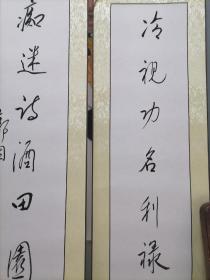 冷视功名利禄
痴迷诗酒田园